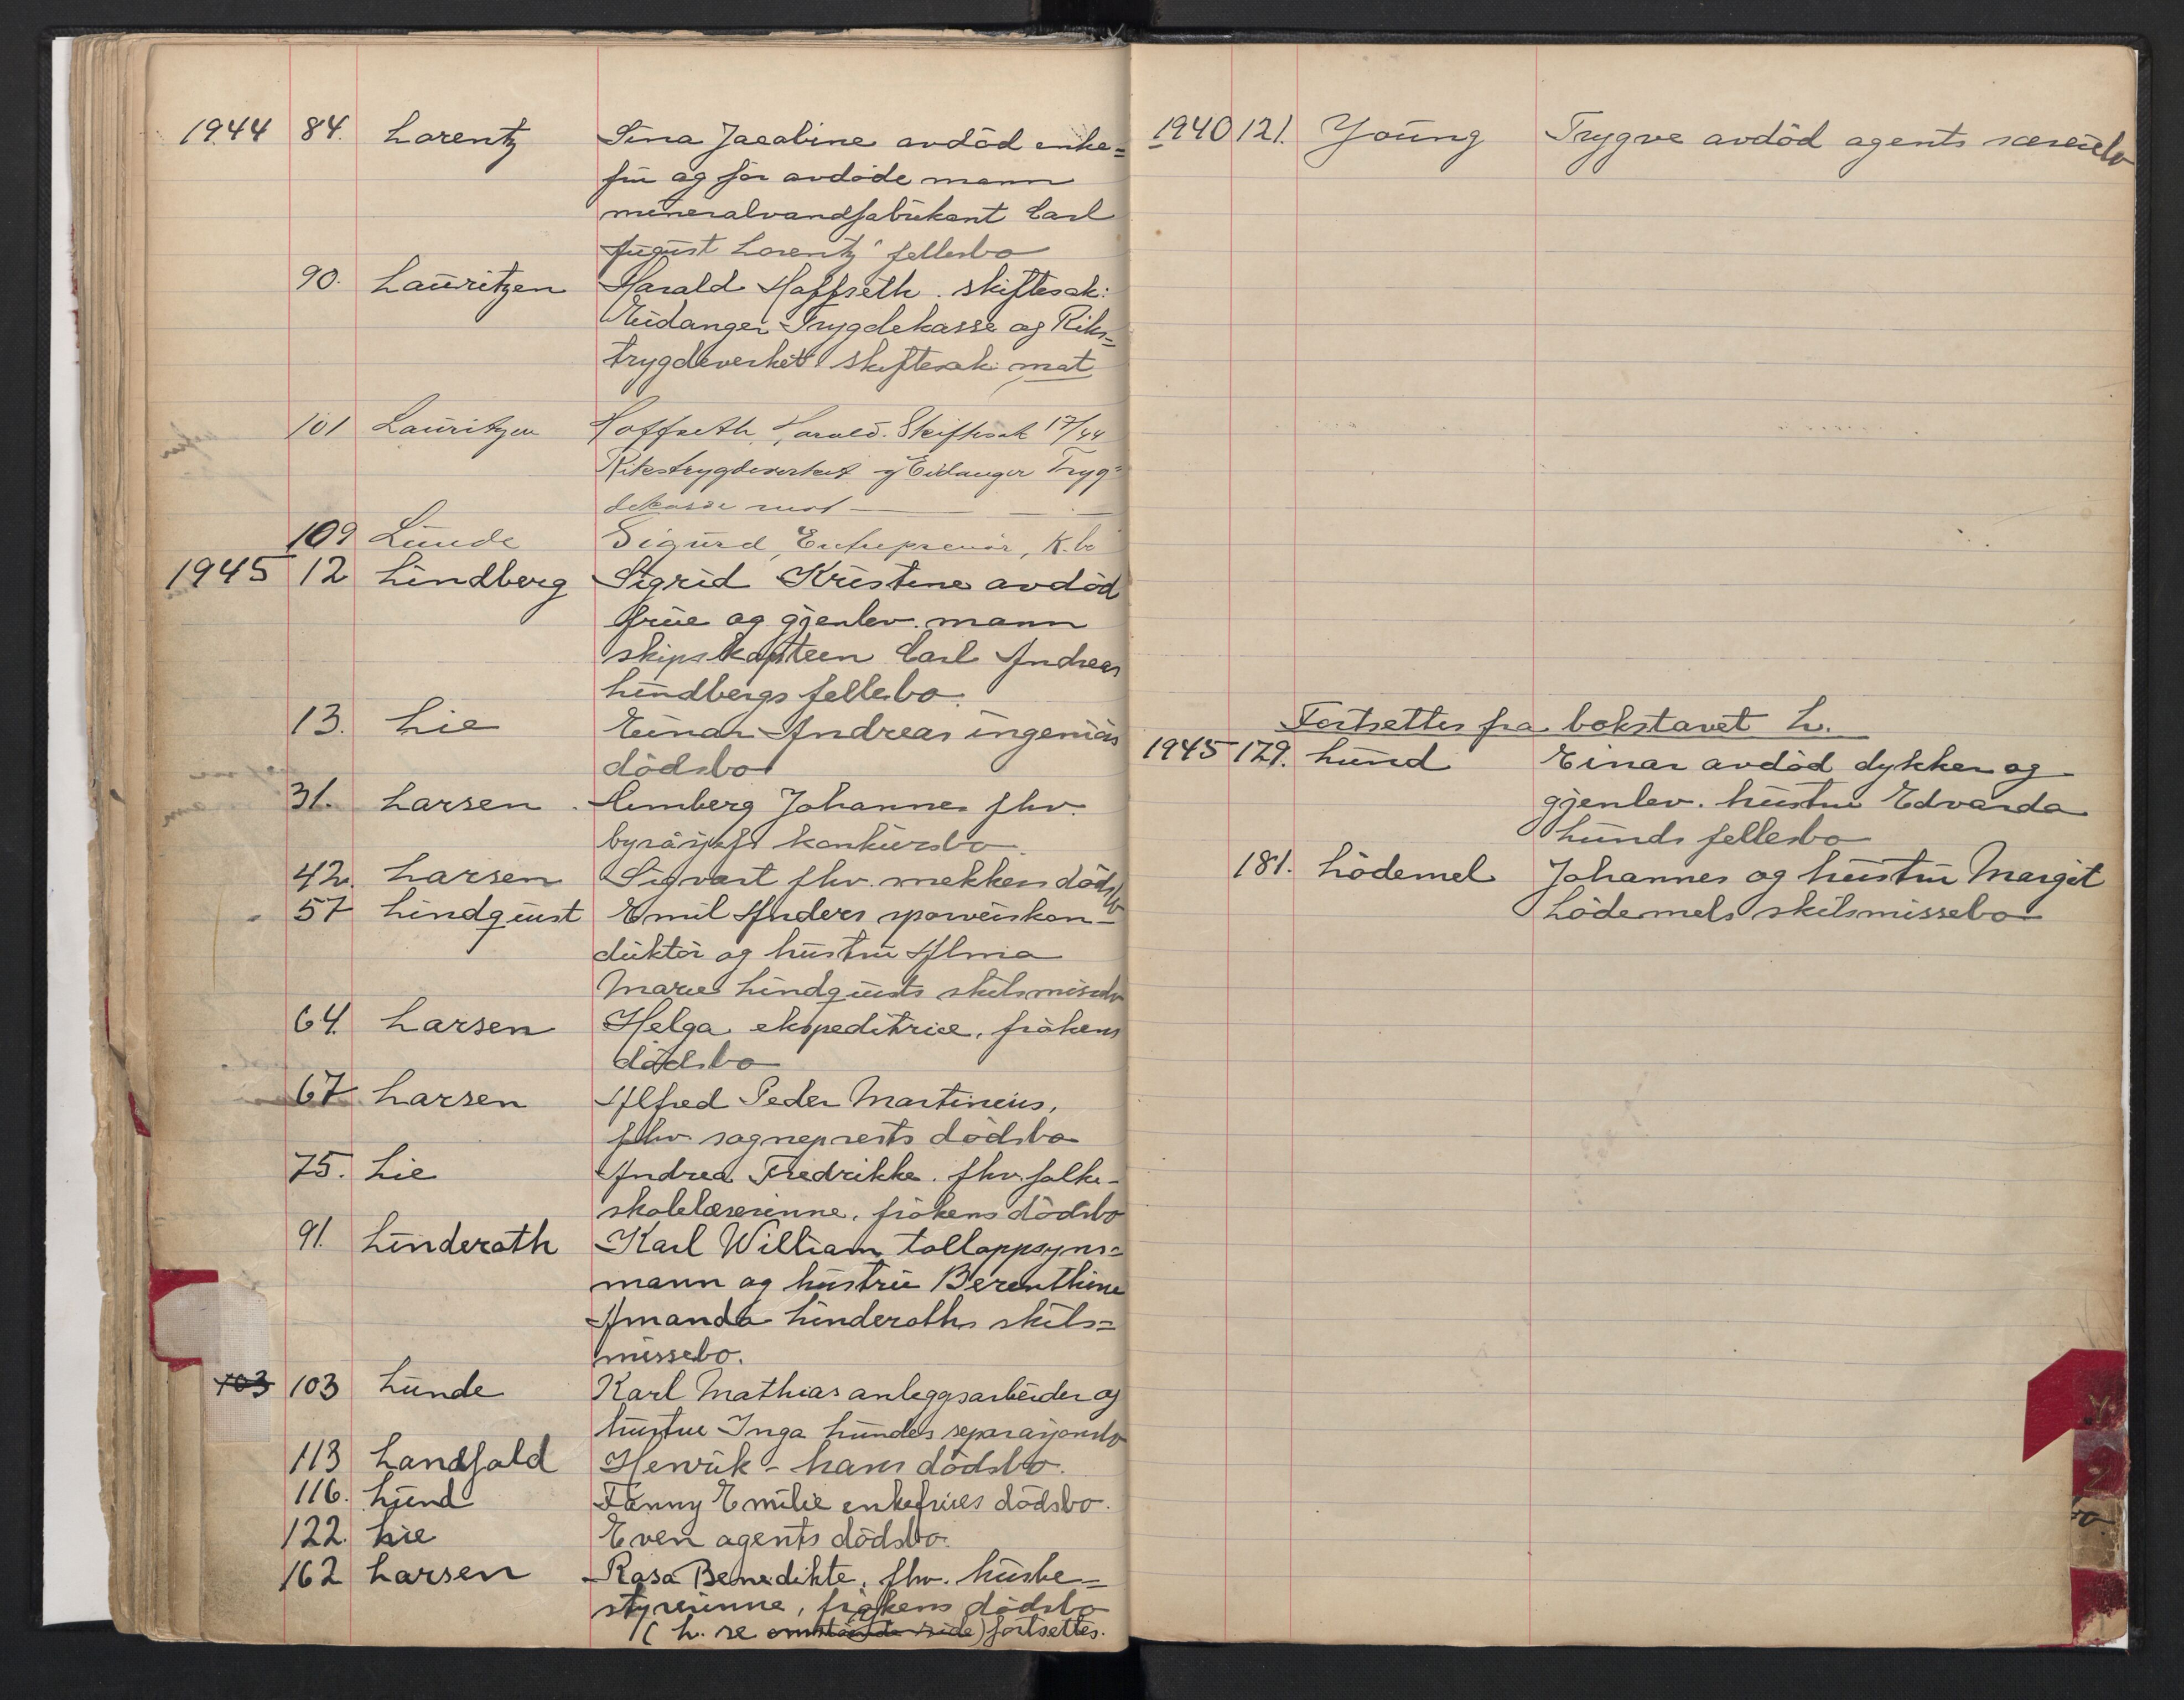 1944 84. Lorentz Sina Jacobine avdöd enke=
fru og før avdöde mann
mineralvandfabrikant Carl
August Lorentz' fellesbo
90. Lauritzen Harald Haffreth. skiftesak:
Eidanger Trygdekasse og Riks=
trygdeverket skiftesak mot
101 Lauritzen Hoffreth, Harald. Skiftesak 17/44
Rikstrygdeverket og Eidanger Tryg=
dekasse mot —
109 Lunde Sigurd, Entreprenör, K.bo
1945 12 Lindberg Sigrid Kristine avdöd
frue og gjenlev. mann
skipskaptein Carl Andreas
Lindbergs fellesbo.
13. Lie Einar Andreas ingeniörs
dödsbo
31. Larsen Aimberg Johannes fhv.
byråsjefs konkursbo.
42. Larsen Sigvart fhv. mekkers dödsbo
57 Lindquist Emil Anders sporveiskon-
duktör og hustru Alma
Marie Lindquists skilsmissebo
64. Larsen Helga ekspeditrice, frökens
dödsbo
67 Larsen Alfred Peder Martinius,
fhv. sogneprests dödsbo
75. Lie Andrea Fredrikke. fhv. folke-
skolelærerinne, frökens dödsbo
91. Linderoth Karl William tolloppsyns=
mann og hustru Berenthine
Amanda Linderoths skils=
missebo.
103 103 Lunde Karl Mathias anleggsarbeider og
hustru Inga Lundes separasjonsbo
113 Landfald Henrik - hans dödsbo.
116. Lund Fanny Emilie enkefrues dödsbo.
122. Lie Even agents dödsbo.
162 Larsen Rosa Benedikte, fhv. husbe=
styrerinne, frökens dödsbo
(L. se omstående side) fortsettes.
1940 121. Young Trygve avdöd agents særeiebo
Fortsettes fra bokstavet L.
1945 179. Lund Einar avdöd dykker og
gjenlev. hustru Edvarda
Lunds fellesbo
181. Lödemel Johannes og hustru Margit
Lödemels skilsmissebo